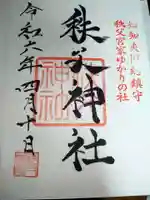 知知夫国総鎮守
秩父宮家ゆかりの社
秩父神社
令和六年四月十日